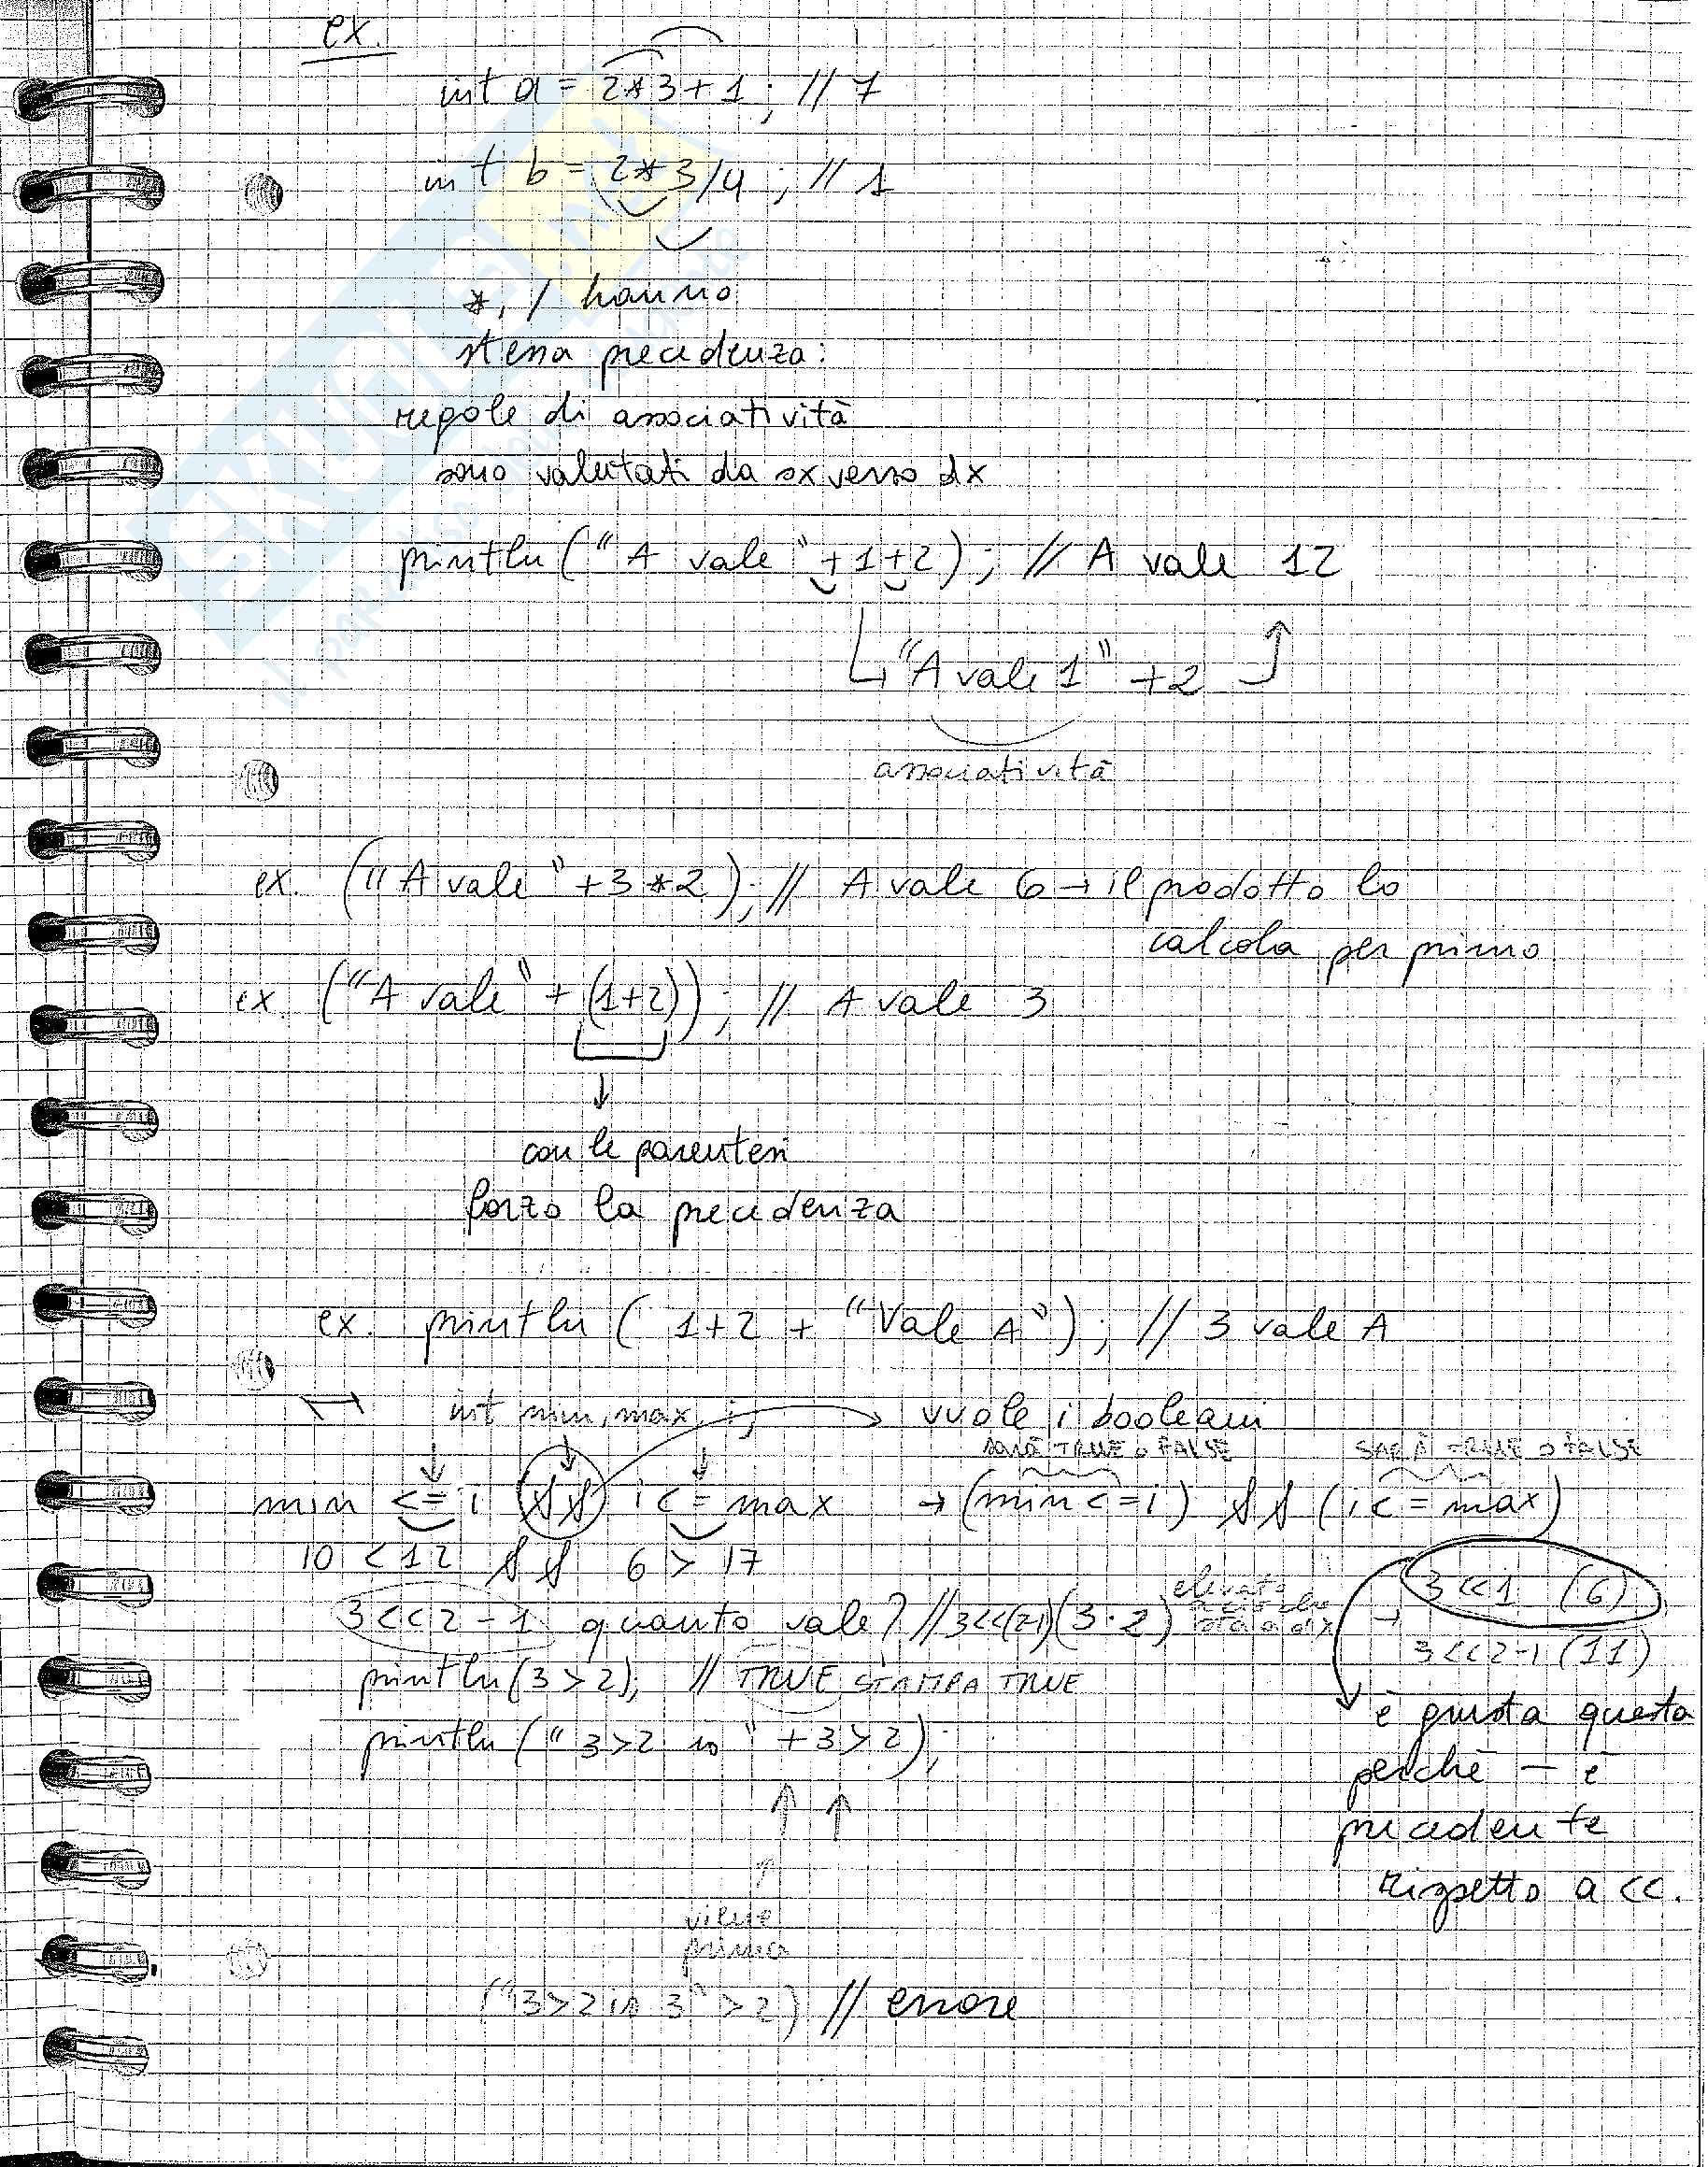 ex.
int a = 2*3+1; // 7
int b = 2*3/4; // 1
*, / hanno
stessa precedenza:
regole di associatività
sono valutati da sx verso dx
println("A vale"+1+2); // A vale 12
"A vale 1" +2
associatività
ex. ("A vale"+3*2); // A vale 6 → il prodotto lo
calcola per primo
ex. ("A vale" + (1+2)); // A vale 3
con le parentesi
forzo la precedenza
ex. println( 1+2 + "Vale A"); // 3 vale A
int min, max, i; vuole i booleani
sarà TRUE o FALSE SARÀ TRUE o FALSE
min <= i && i <= max → (min <= i) && (i <= max)
10 < 12 && 6 > 17
3<<2-1 quanto vale? // 3<<(2-1) (3·2) elevato a ciò che sta a dx → 3<<1 (6)
3<<2-1 (11)
println(3>2); // TRUE STAMPA TRUE
è giusta questa
perchè - è
precedente
rispetto a <<.
println("3>2 is" +3>2);
viene
prima
("3>2 is 3" >2) // errore
SKUOLA.net
il paradiso dello studente